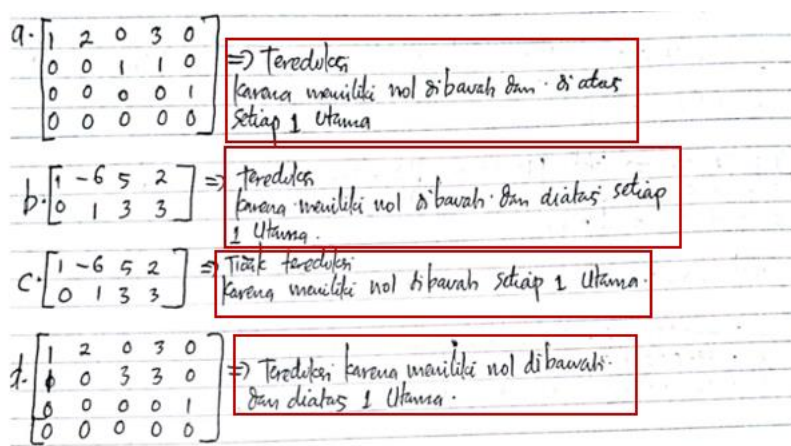 a. [1 2 0 3 0
0 0 1 1 0
0 0 0 0 1
0 0 0 0 0]
=> Tereduksi
karena memiliki nol dibawah dan diatas
setiap 1 utama
b. [1 -6 5 2
0 1 3 3]
=> tereduksi
karena memiliki nol dibawah dan diatas setiap
1 Utama.
c. [1 -6 5 2
0 1 3 3]
=> Tidak tereduksi
karena memiliki nol dibawah setiap 1 Utama.
d. [1 2 0 3 0
0 0 3 3 0
0 0 0 0 1
0 0 0 0 0]
=> Tereduksi karena memiliki nol dibawah
dan diatas 1 Utama.